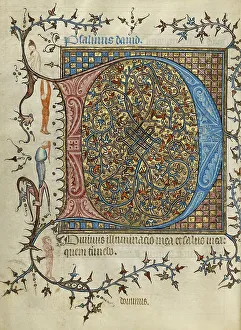 Psalmus dauid.
D
Ominus illuminacio mea et salus mea
quem timebo.
dominus.